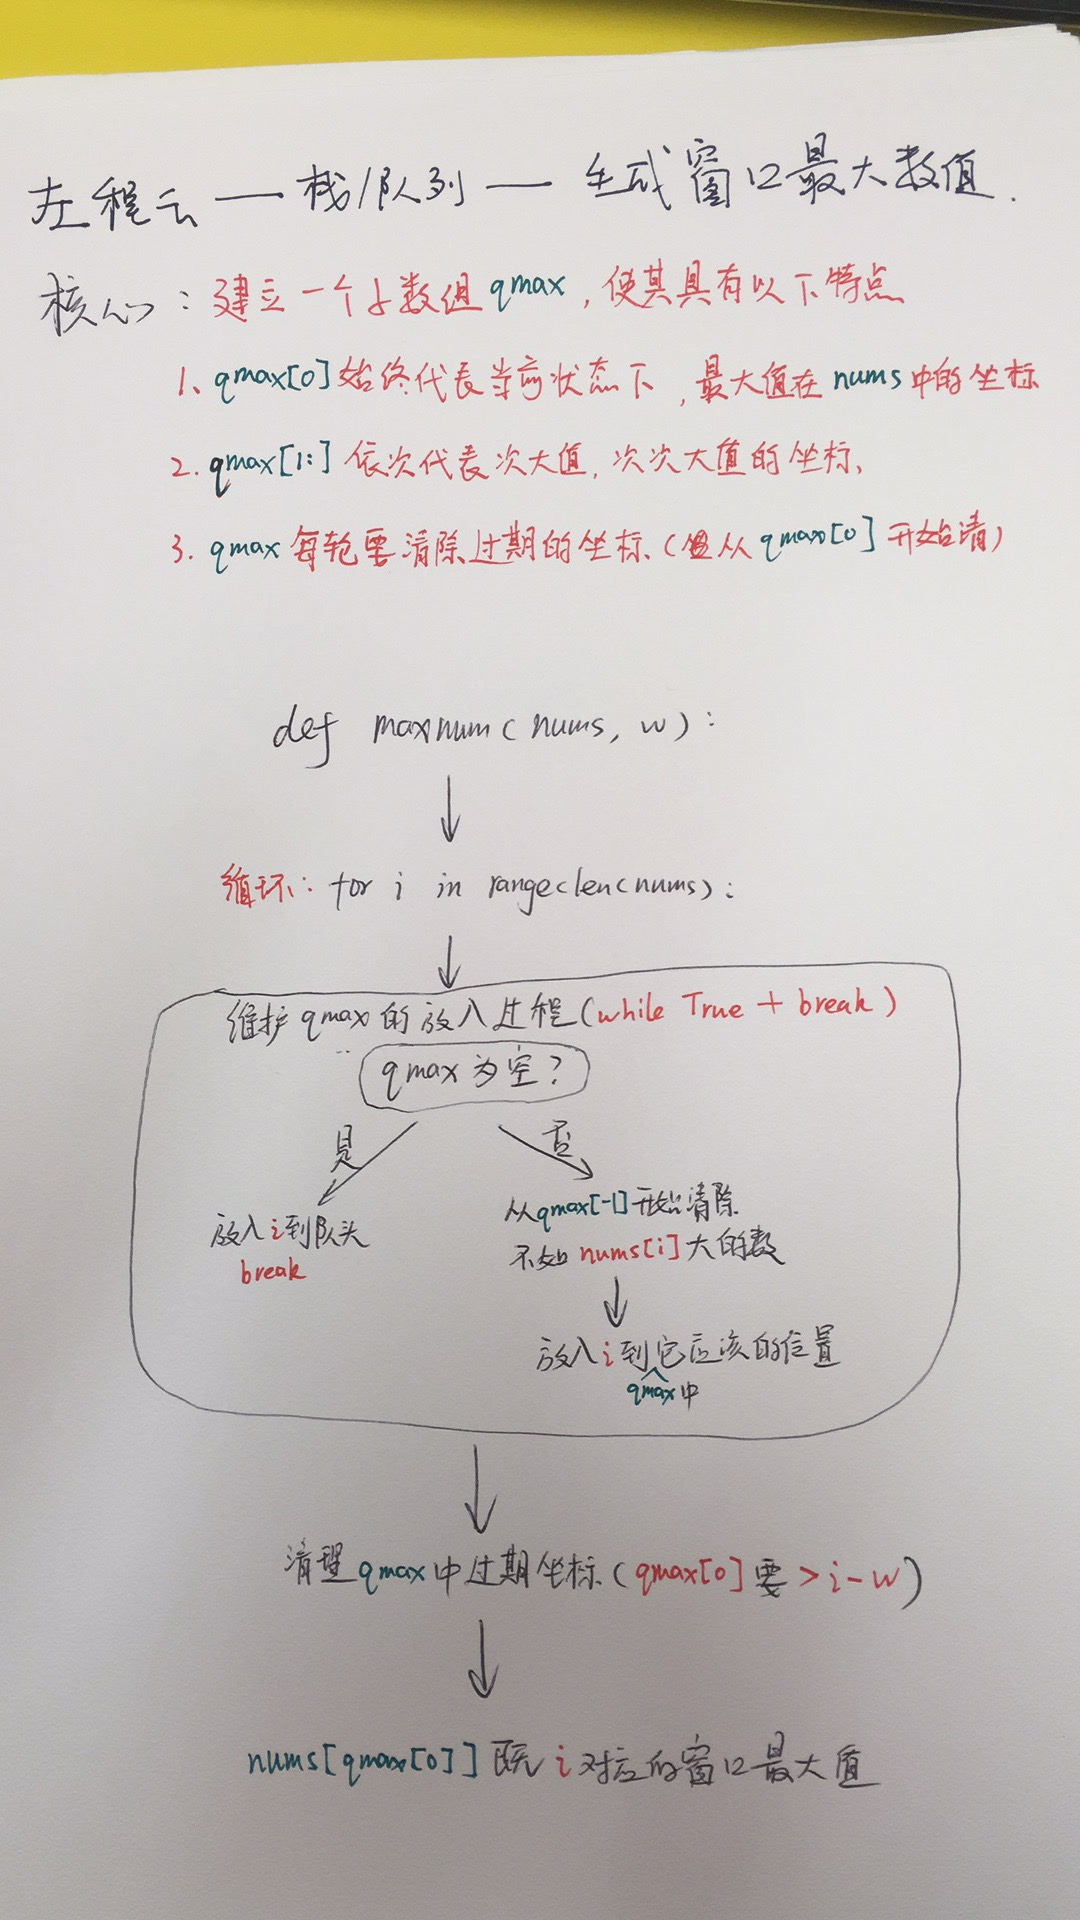 左程云——栈/队列——生成窗口最大数值.
核心:建立一个子数组qmax,使其具有以下特点
1、qmax[0]始终代表当前状态下,最大值在nums中的坐标
2.qmax[1:]依次代表次大值,次次大值的坐标、
3.qmax每轮要清除过期的坐标(从qmax[0]开始清)
def maxnum(nums, w):
循环: for i in range(len(nums):
维护qmax的放入过程(while True + break)
qmax为空?
是
否
放入i到队头
break
从qmax[-1]开始清除
不如nums[i]大的数
放入i到它应该的位置
qmax中
清理qmax中过期坐标(qmax[0]要>i-w)
nums[qmax[0]]既i对应的窗口最大值